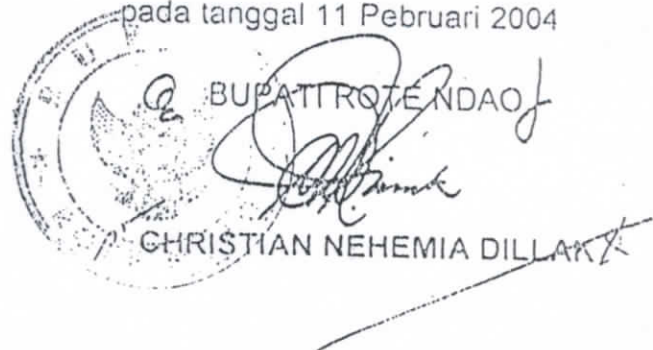 pada tanggal 11 Pebruari 2004
BUPATI ROTE NDAO
CHRISTIAN NEHEMIA DILLAK